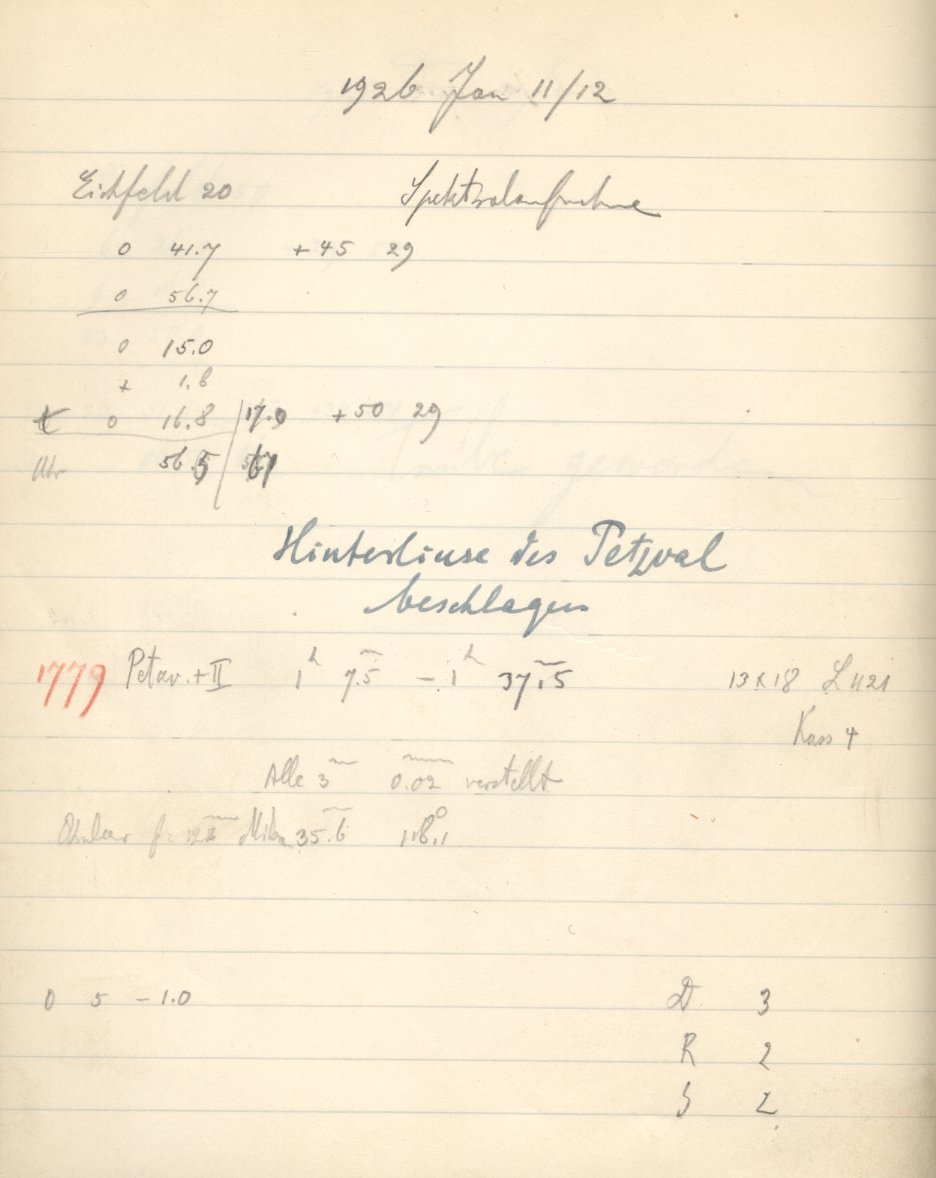 1926 Jan 11/12
Eichfeld 20 Spektralaufnahme
0 41.7 +45 29
0 56.7
0 15.0
+ 1.8
t 0 16.8 / 17.0 +50 29
Uhr 56.5 /
Hinterlinse des Petzval
beschlagen
1779 Petzv. + II 1h 7.5m – 1h 37m.5 13x18 L 1121
Kass 4
Alle 3m 0.02mm verstellt
f. 12 mm Mikr 35.6 118°.1
0 5 – 1.0 D 3
R 2
S 2